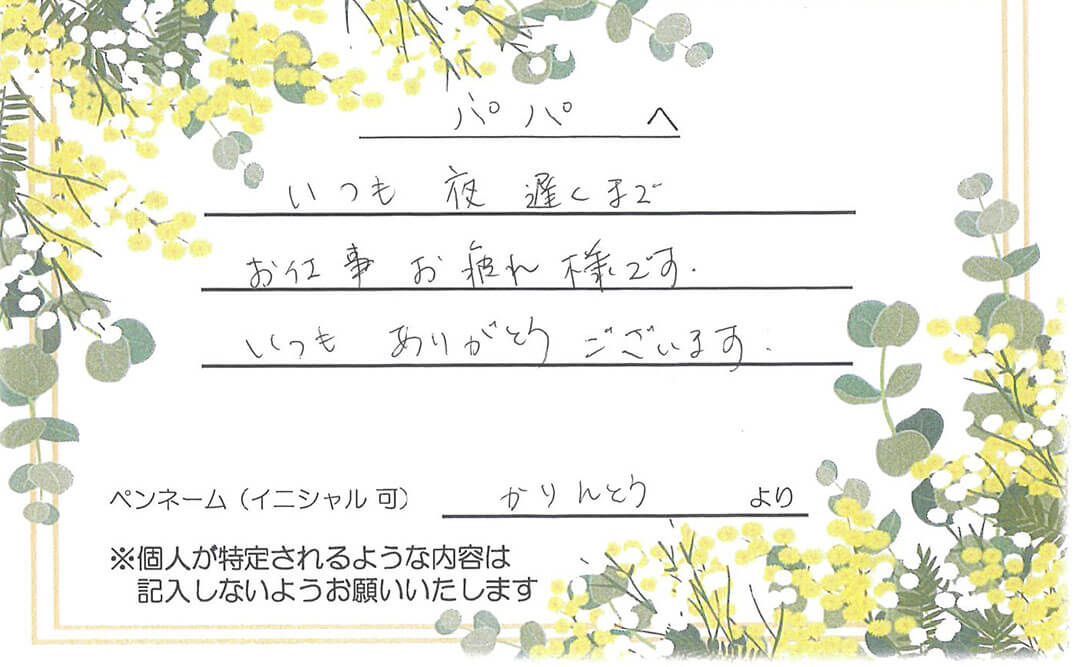 パパ へ
いつも 夜 遅くまで
お仕事 お疲れ様です.
いつも ありがとう ございます.
ペンネーム（イニシャル 可） かりんとう より
※個人が特定されるような内容は
記入しないようお願いいたします